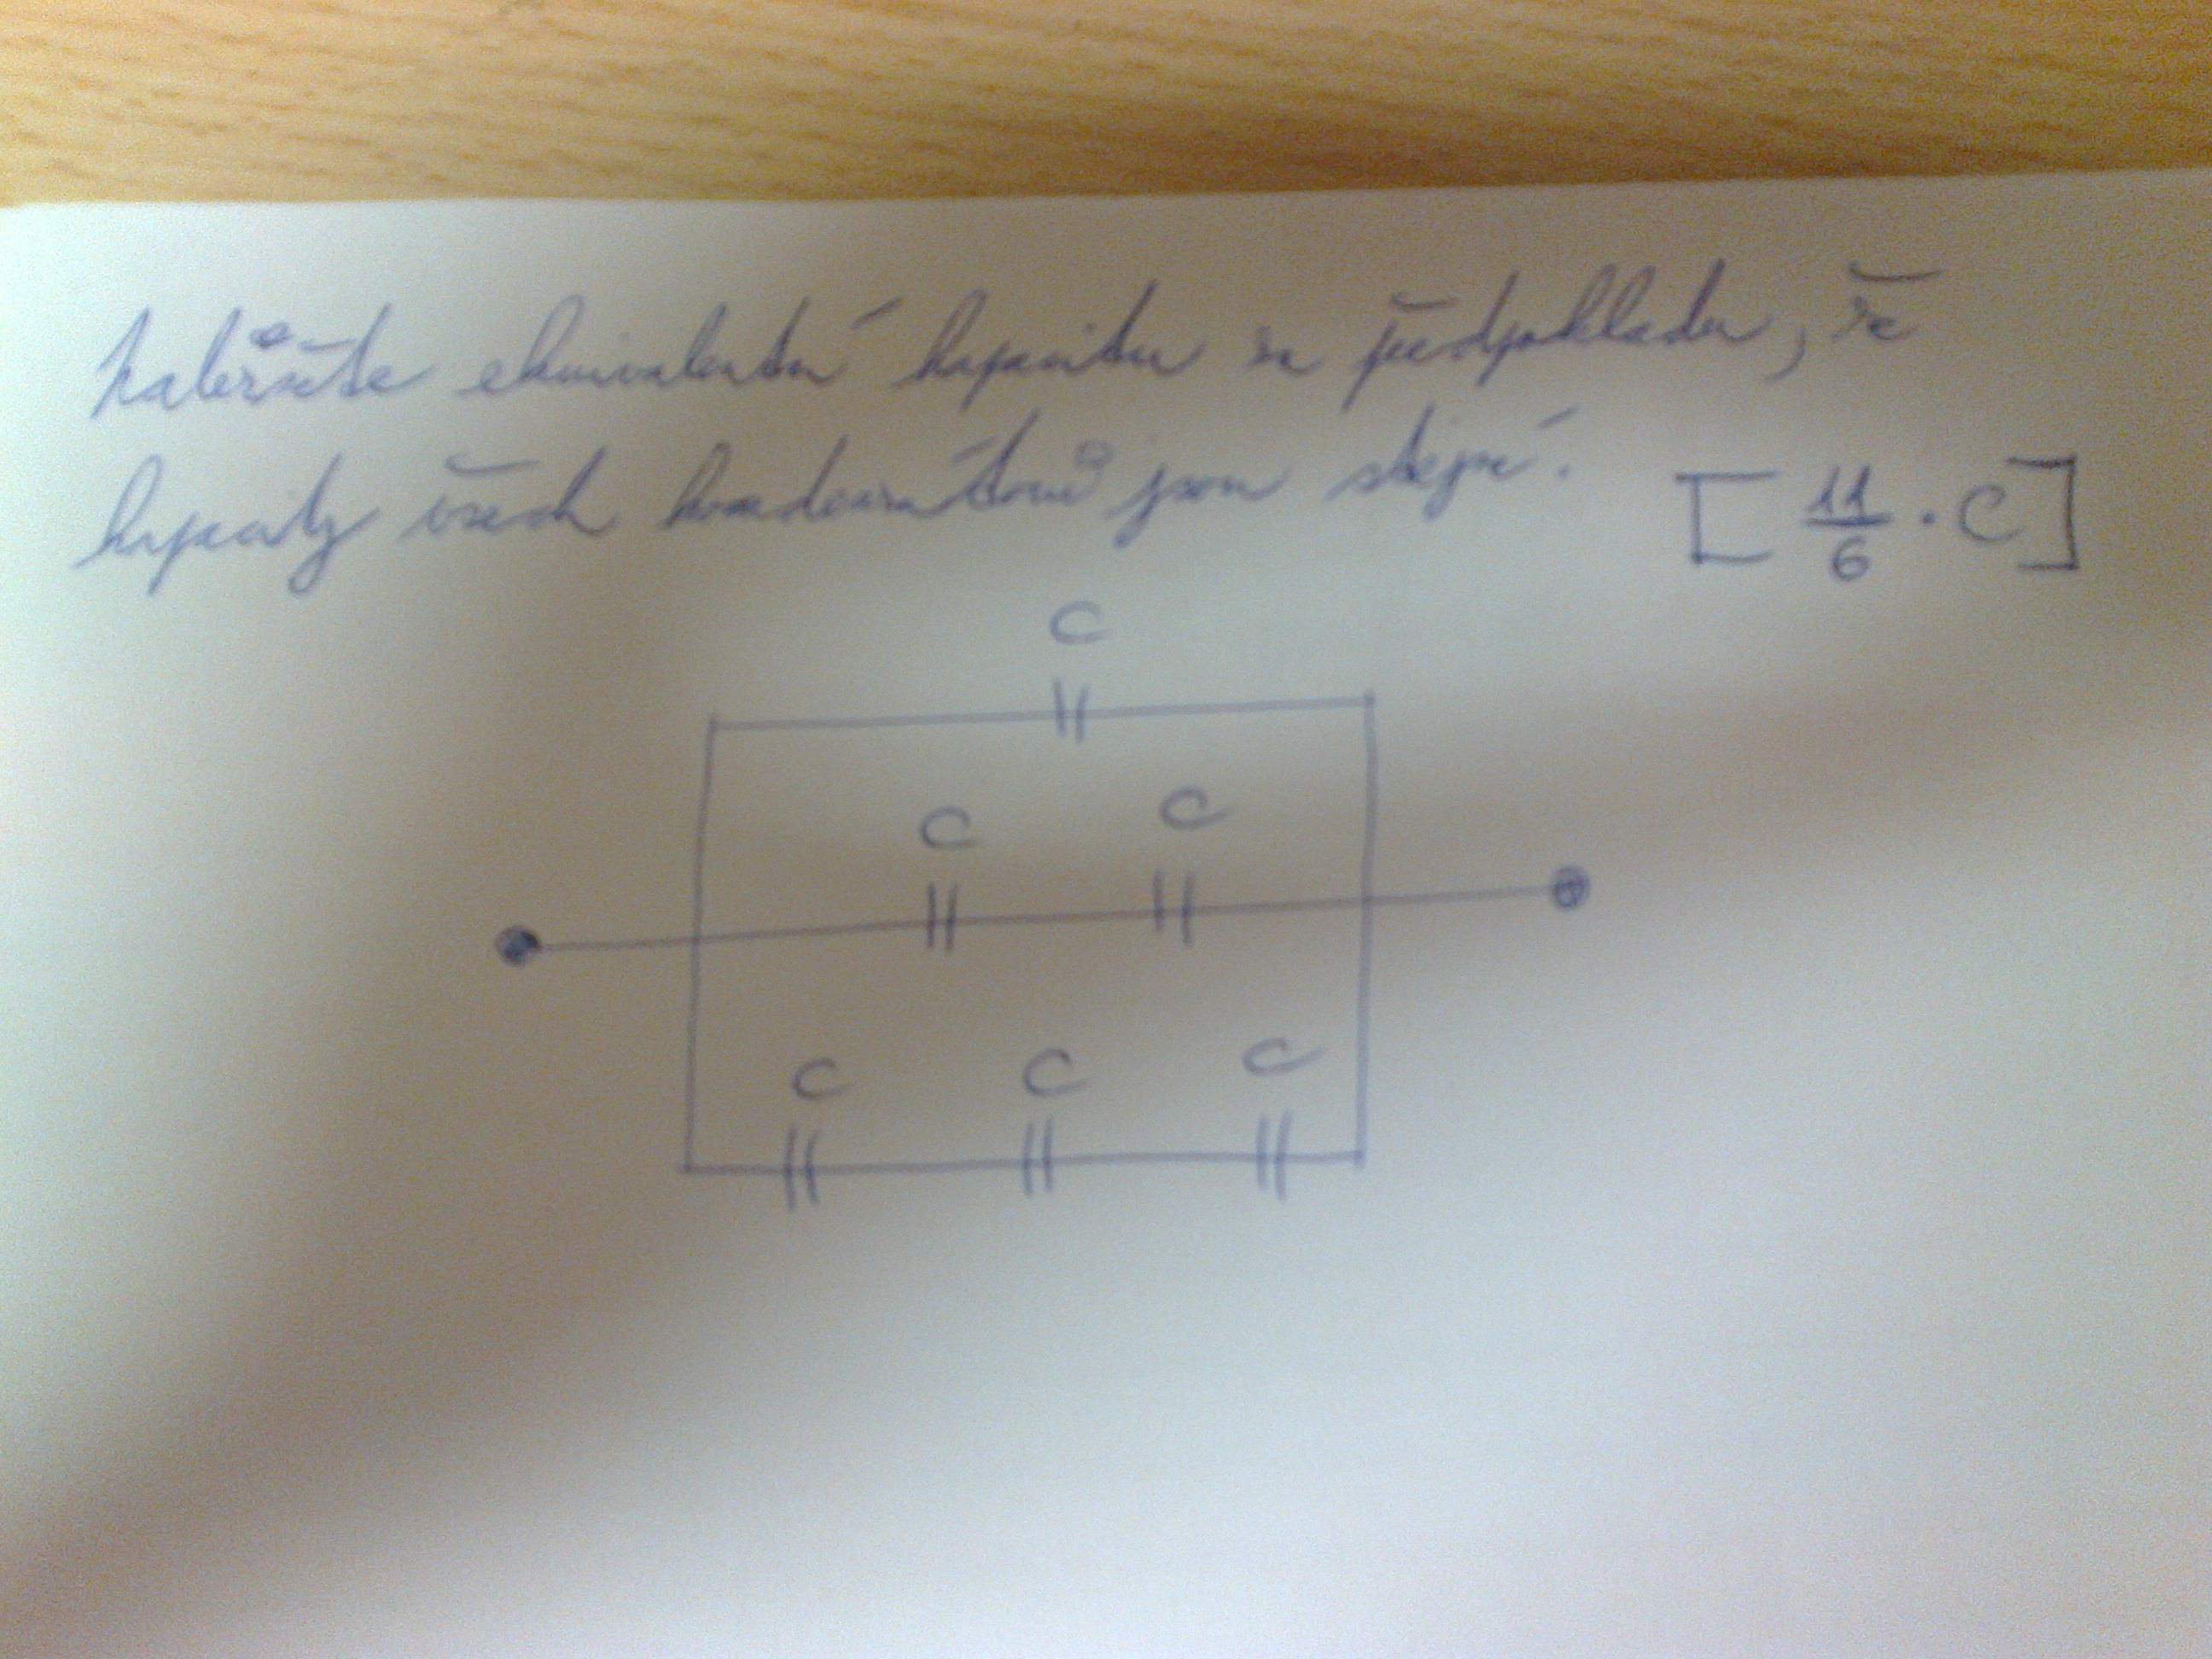 Nakreslete ekvivalentní kapacitu za předpokladu, že
kapacity všech kondenzátorů jsou stejné.
[11/6 · C]
C
C C
C C C